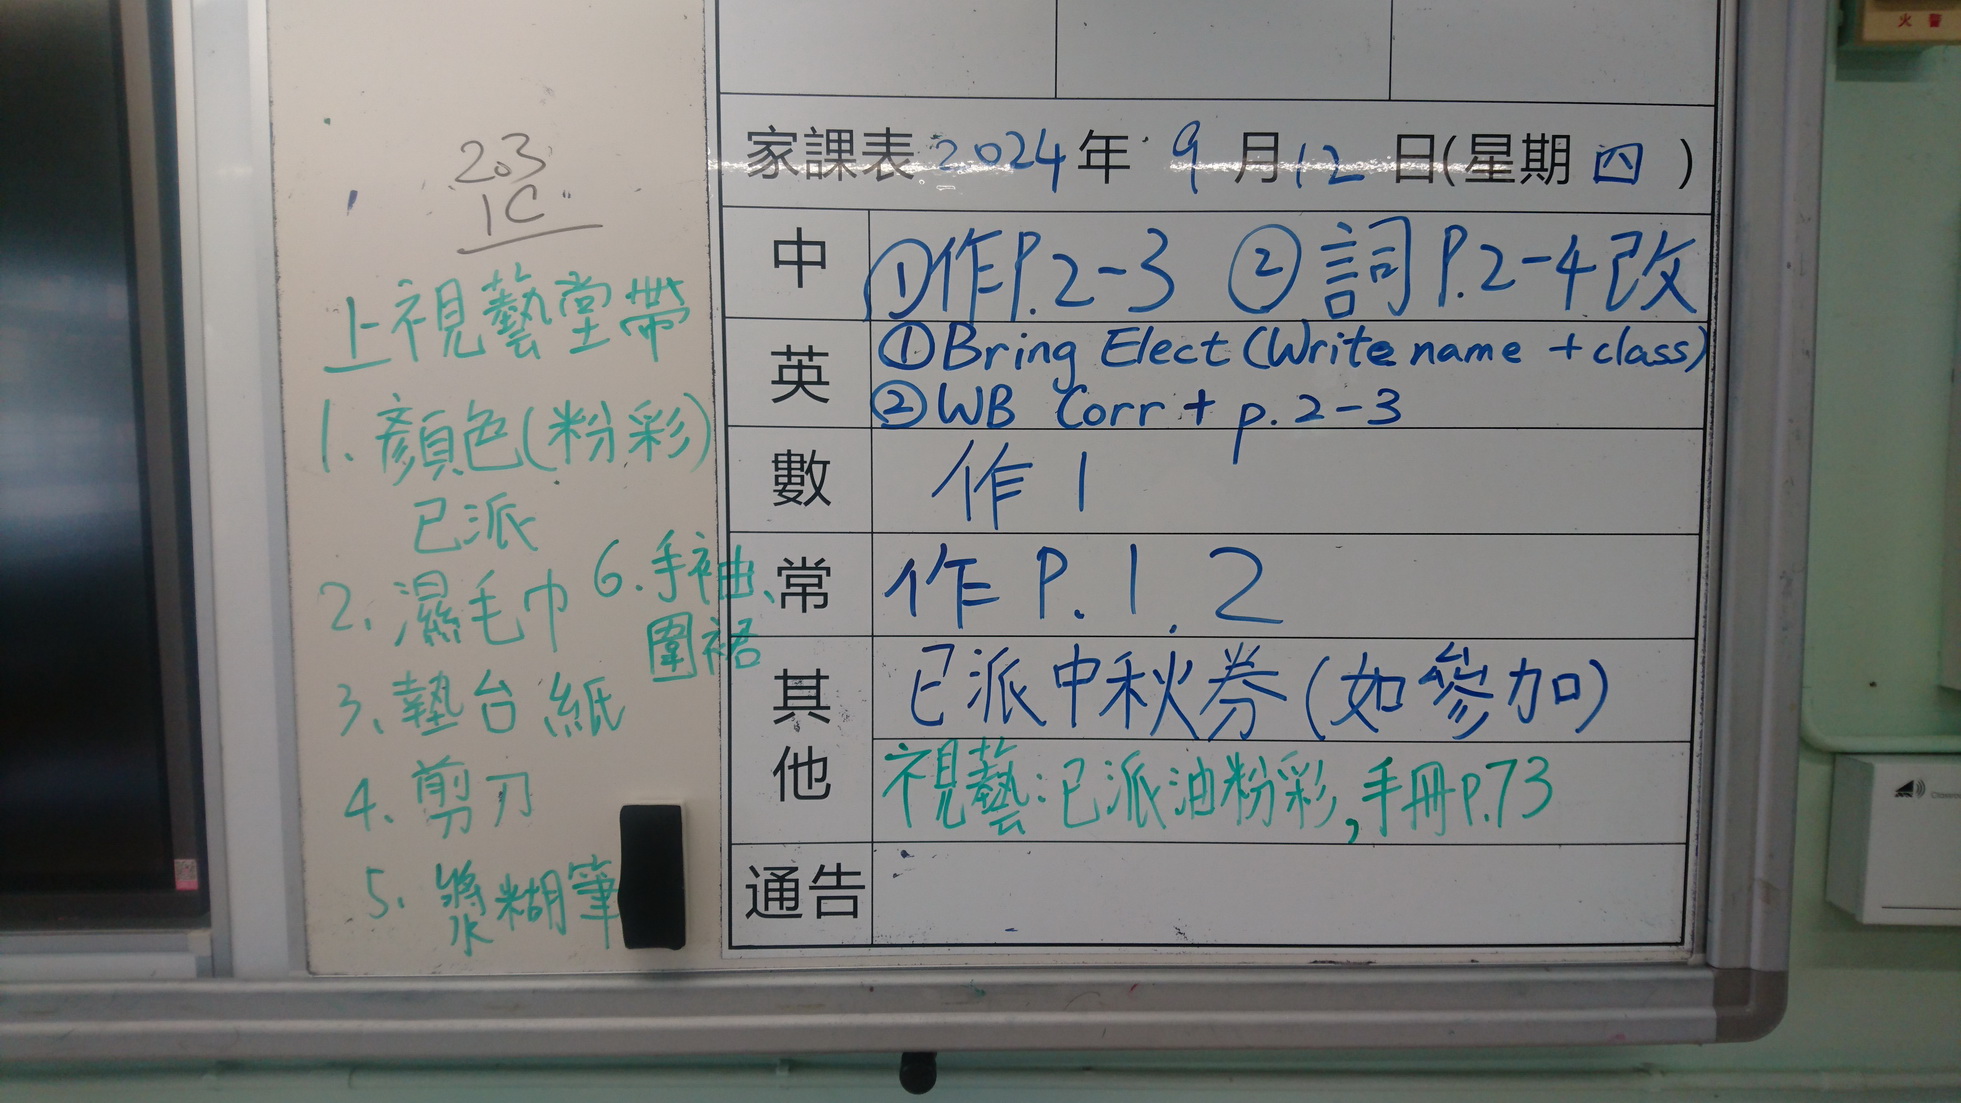 火警
203
1C
上視藝堂帶
1. 顏色(粉彩)
已派
2. 濕毛巾
3、墊台紙
4. 剪刀
5. 漿糊筆
6. 手袖、
圍裙
家課表 2024年 9月12日(星期四)
中 ①作P.2-3 ②詞P.2-4改
英 ①Bring Elect (Write name + class)
②WB Corr + p.2-3
數 作1
常 作P.1, 2
其他 已派中秋券(如參加)
視藝:已派油粉彩,手冊P.73
通告